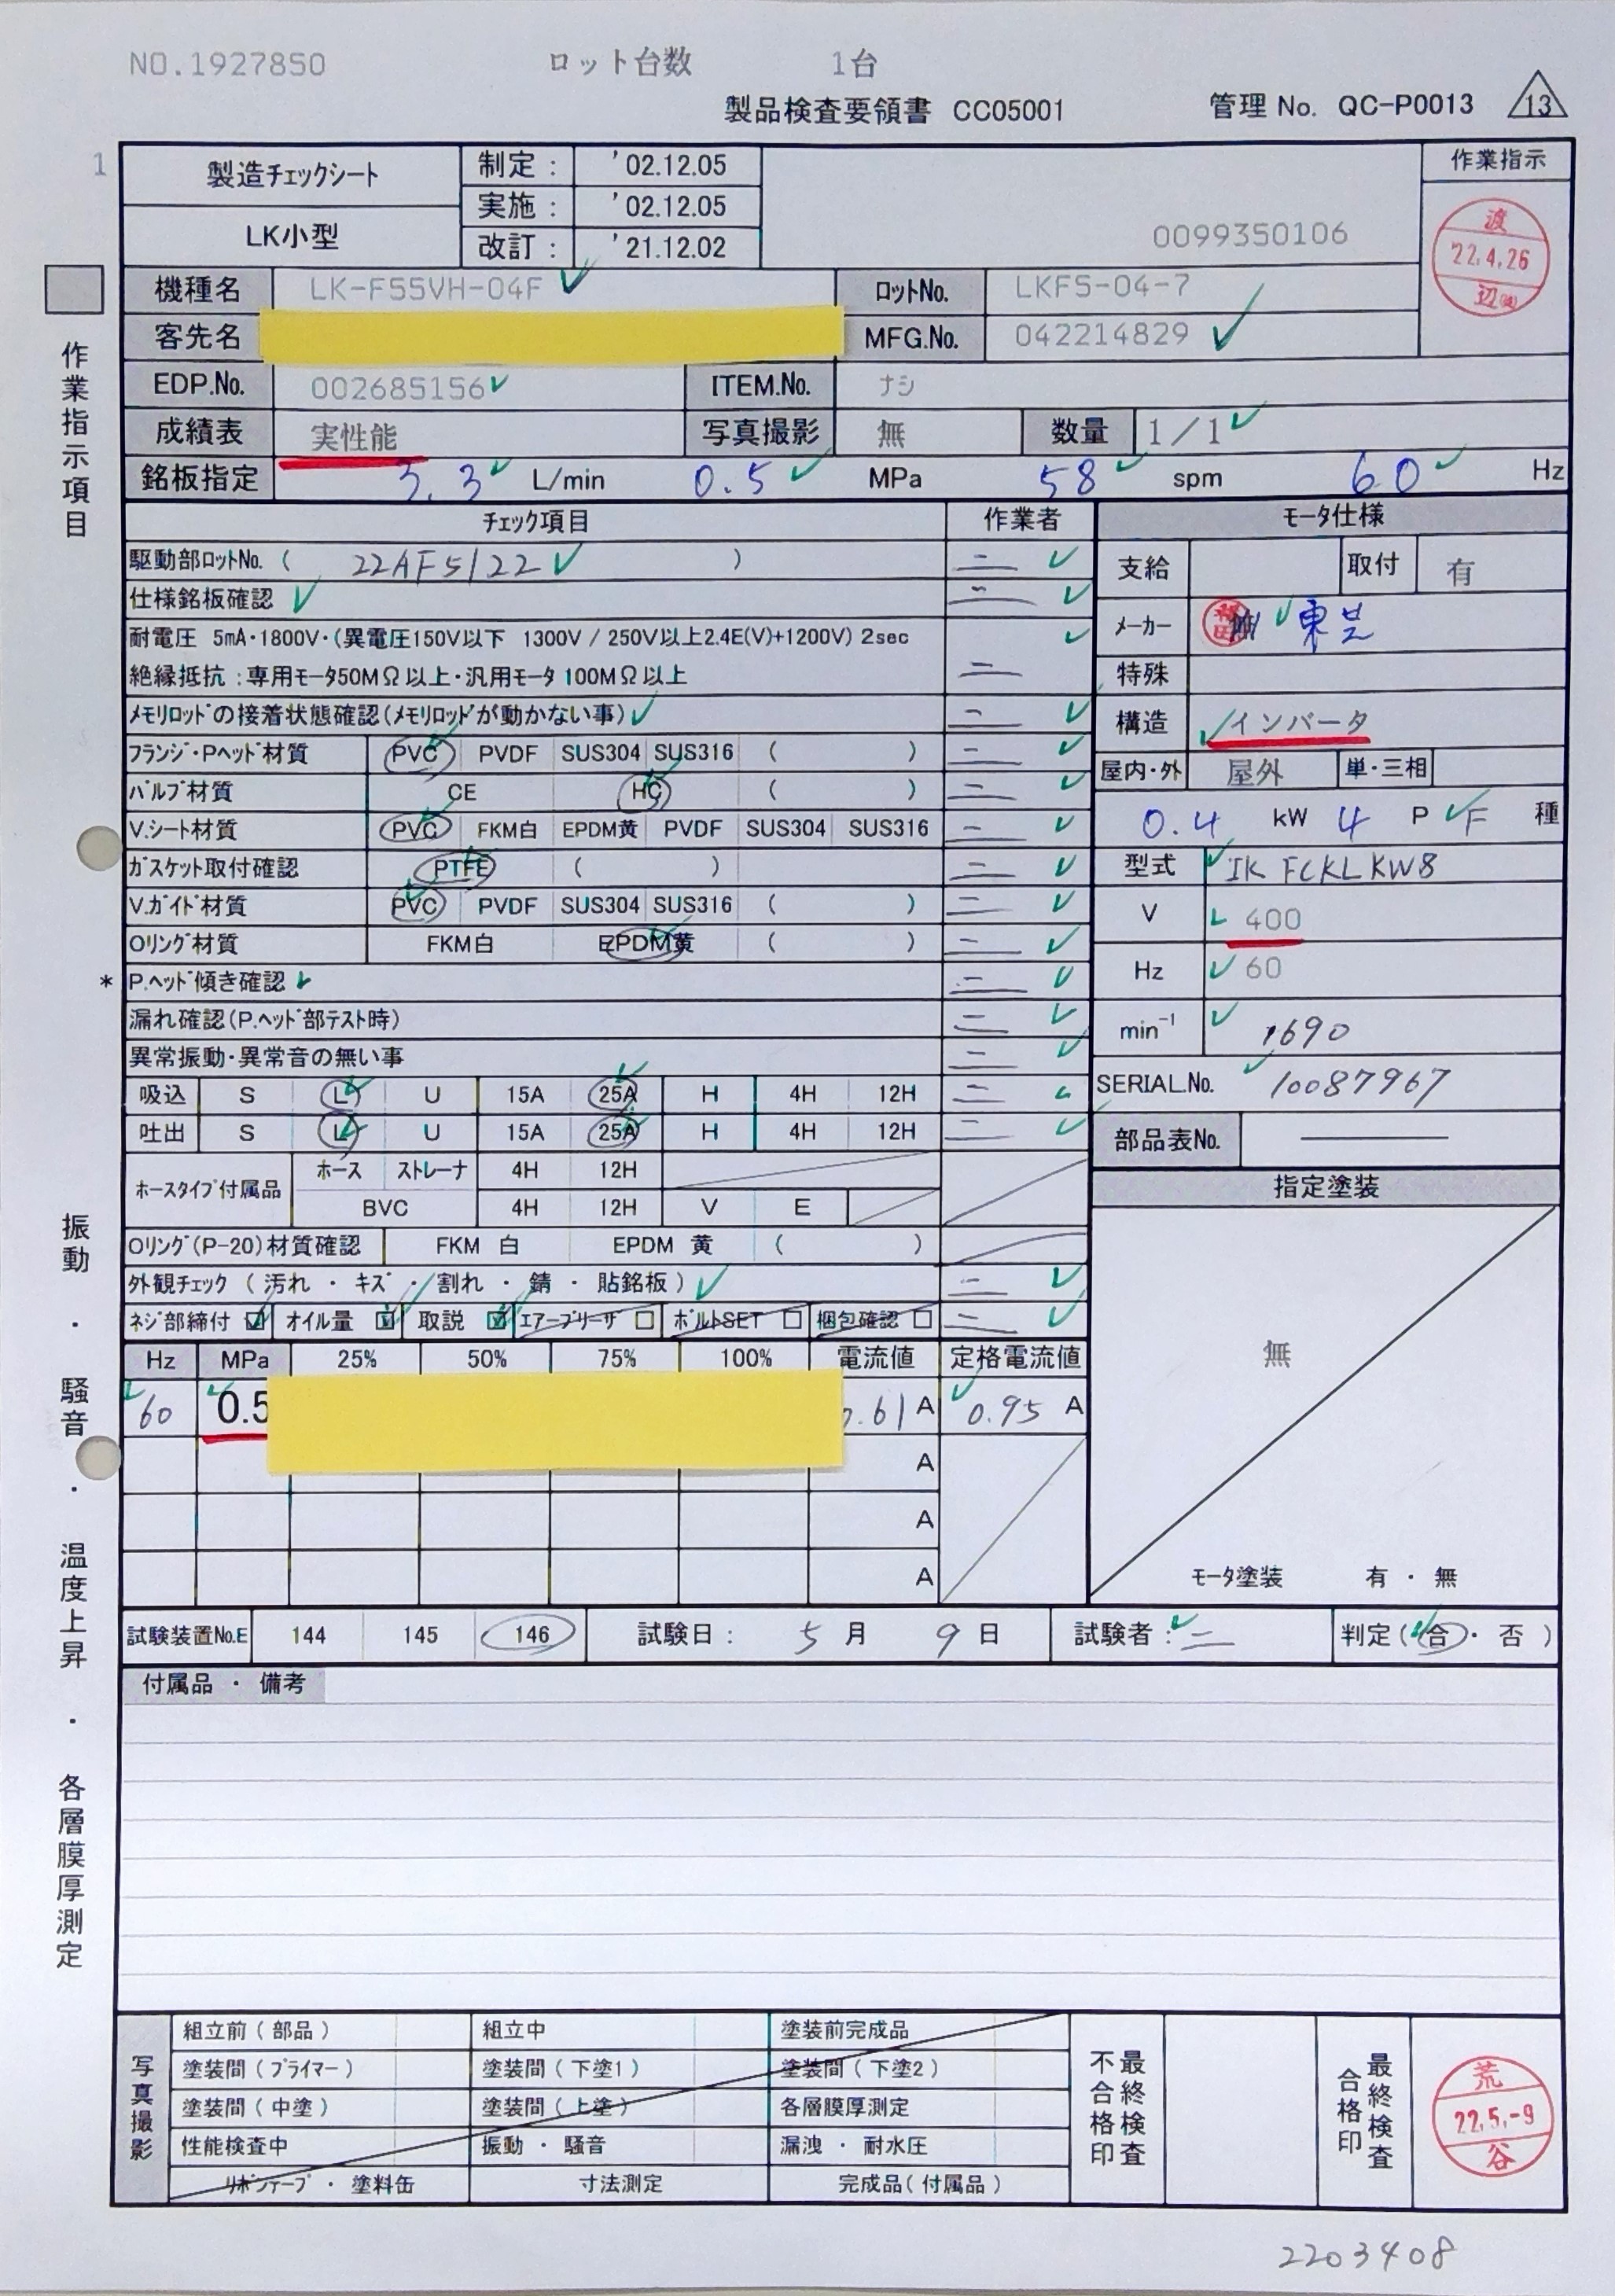 NO.1927850 ロット台数 1台
製品検査要領書 CC05001 管理 No. QC-P0013 13
1
製造チェックシート 制定： '02.12.05 作業指示
実施： '02.12.05
LK小型 改訂： '21.12.02 0099350106
渡 22.4.26 辺
機種名 LK-F55VH-04F ロットNo. LKF5-04-7
客先名 MFG.No. 042214829
EDP.No. 002685156 ITEM.No. ナシ
成績表 実性能 写真撮影 無 数量 1/1
銘板指定 3.3 L/min 0.5 MPa 58 spm 60 Hz
作業指示項目
振動・騒音・温度上昇・各層膜厚測定
チェック項目 作業者
駆動部ロットNo.( 22AF5122 ) 二
仕様銘板確認 二
耐電圧 5mA・1800V・(異電圧150V以下 1300V / 250V以上2.4E(V)+1200V) 2sec
絶縁抵抗：専用モータ50MΩ以上・汎用モータ 100MΩ以上 二
メモリロッドの接着状態確認(メモリロッドが動かない事) 二
フランジ・Pヘッド材質 PVC PVDF SUS304 SUS316 ( ) 二
バルブ材質 CE HC ( ) 二
V.シート材質 PVC FKM白 EPDM黄 PVDF SUS304 SUS316 二
ガスケット取付確認 PTFE ( ) 二
V.ガイド材質 PVC PVDF SUS304 SUS316 ( ) 二
Oリング材質 FKM白 EPDM黄 ( ) 二
* P.ヘッド傾き確認 二
漏れ確認(P.ヘッド部テスト時) 二
異常振動・異常音の無い事 二
吸込 S L U 15A 25A H 4H 12H 二
吐出 S L U 15A 25A H 4H 12H 二
ホースタイプ付属品 ホース ストレーナ 4H 12H
BVC 4H 12H V E
Oリング(P-20)材質確認 FKM 白 EPDM 黄 ( )
外観チェック ( 汚れ ・ キズ ・ 割れ ・ 錆 ・ 貼銘板 ) 二
ネジ部締付 ☑ オイル量 ☑ 取説 ☑ エアーブリーザ □ ボルトSET □ 梱包確認 □ 二
モータ仕様
支給 取付 有
メーカー 東芝
特殊
構造 インバータ
屋内・外 屋外 単・三相
0.4 kW 4 P F 種
型式 IK FCKLKW8
V 400
Hz 60
min⁻¹ 1690
SERIAL.No. 10087967
部品表No.
指定塗装
無
モータ塗装 有 ・ 無
Hz MPa 25% 50% 75% 100% 電流値 定格電流値
60 0.5 .61 A 0.95 A
A
A
A
試験装置No.E 144 145 146 試験日： 5 月 9 日 試験者：二 判定( 合 ・ 否 )
付属品 ・ 備考
写真撮影
組立前 ( 部品 ) 組立中 塗装前完成品
塗装間 ( プライマー ) 塗装間 ( 下塗1 ) 塗装間 ( 下塗2 )
塗装間 ( 中塗 ) 塗装間 ( 上塗 ) 各層膜厚測定
性能検査中 振動 ・ 騒音 漏洩 ・ 耐水圧
リボンテープ ・ 塗料缶 寸法測定 完成品 ( 付属品 )
最終検査不合格印
最終検査合格印
荒 22.5.-9 谷
2203408